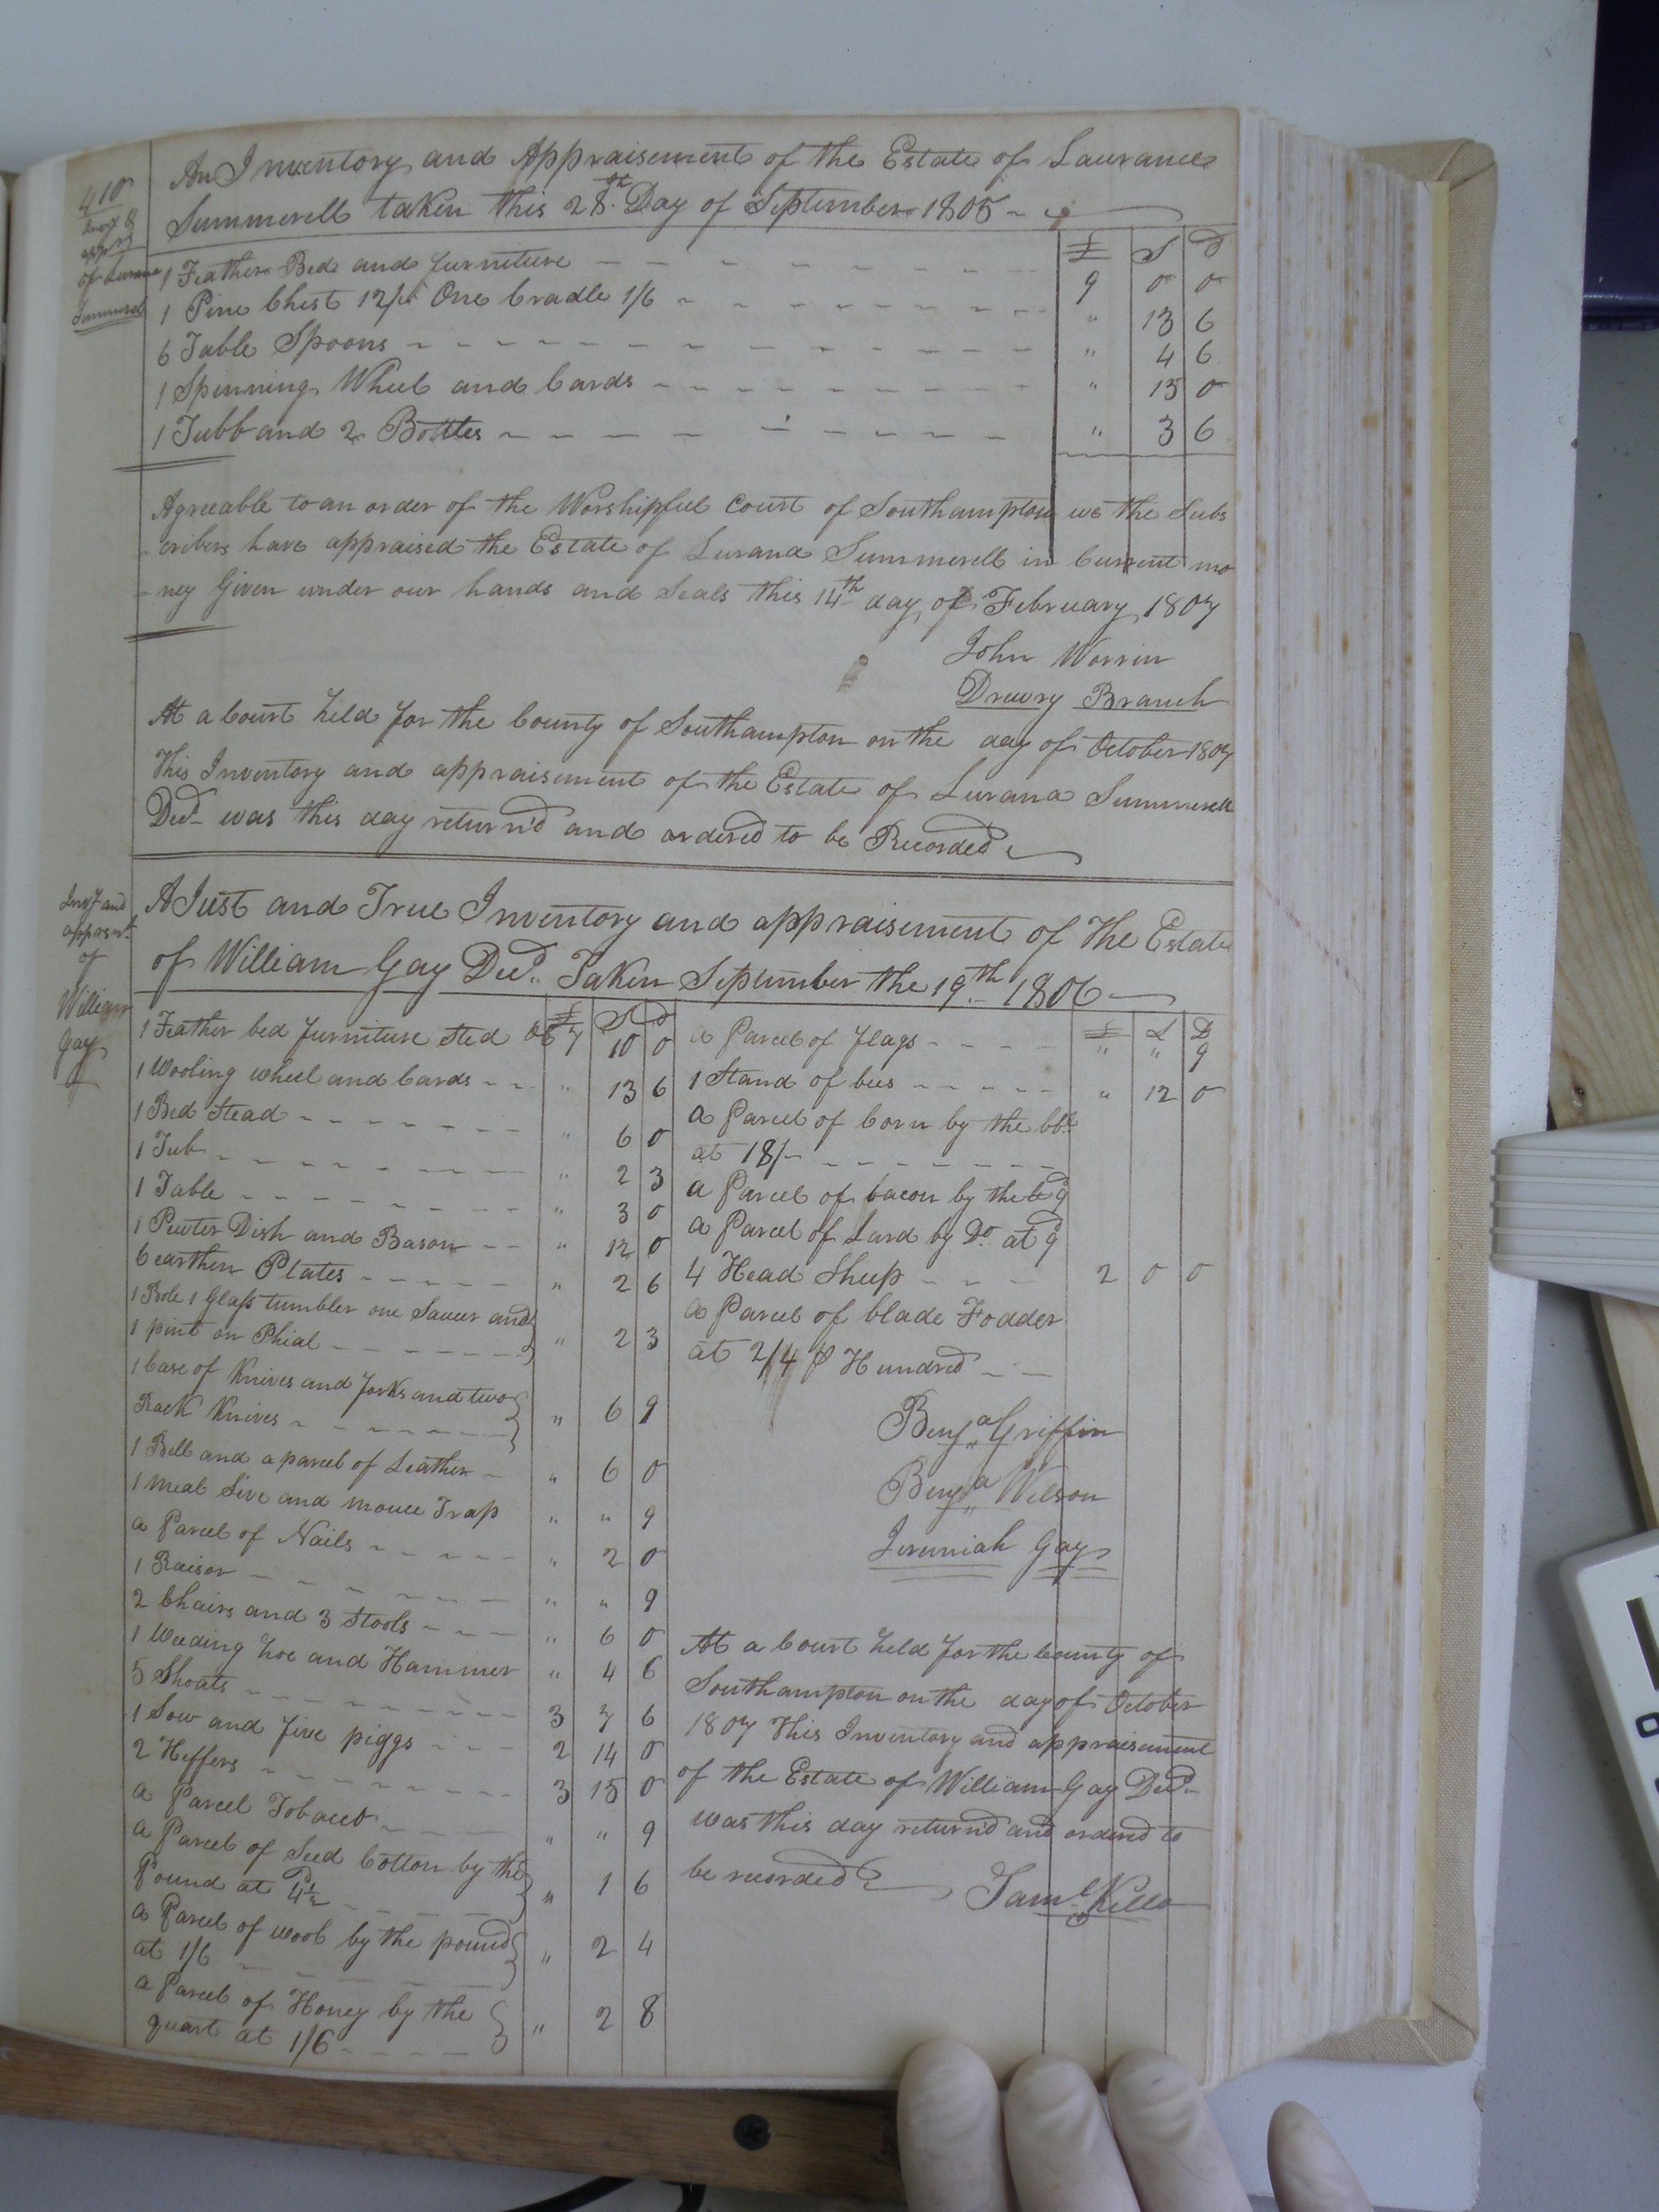 410
Invy &
appr
of Lurana
Summerel
An Inventory and Appraisement of the Estate of Laurance
Summerell taken this 28.th Day of September 1805
£ S D
1 Feather Bed and furniture 9 0 0
1 Pine Chest 12/ One Cradle 1/6 " 13 6
6 Table Spoons " 4 6
1 Spinning Wheel and Cards " 15 0
1 Tubb and 2 Bottles " 3 6
Agreeable to an order of the Worshipful Court of Southampton we the Subs
cribers have appraised the Estate of Lurana Summerell in Current mo
-ney Given under our hands and Seals this 14th day of February 1807
John Worrin
Drewry Branch
At a Court held for the County of Southampton on the day of October 1807
This Inventory and appraisement of the Estate of Lurana Summerell
Decd was this day return'd and ordered to be Recorded
Invy and
apprsmt
of
William
Gay
A Just and True Inventory and appraisement of The Estate
of William Gay Decd. Taken September the 19th 1806
£ S D
1 Feather bed furniture Sted &c 7 10 0
1 Wooling wheel and Cards " 13 6
1 Bed Stead " 6 0
1 Tub " 2 3
1 Table " 3 0
1 Pewter Dish and Bason " 12 0
6 earthen Plates " 2 6
1 Bole 1 Glass tumbler one Saucer and
1 pint on Phial " 2 3
1 Case of Knives and forks and two
Rack Knives " 6 9
1 Bell and a parcel of Leather " 6 0
1 meal Sive and mouce Trap " " 9
a Parcel of Nails " 2 0
1 Raisor " " 9
2 Chairs and 3 Stools " 6 0
1 Weeding hoe and Hammer " 4 6
5 Shoats 3 7 6
1 Sow and five piggs 2 14 0
2 Heffers 3 15 0
a Parcel Tobacco " " 9
a Parcel of Seed Cotton by the
Pound at 4½d " 1 6
a Parcel of wool by the pound
at 1/6 " 2 4
a Parcel of Honey by the
quart at 1/6 " 2 8
£ S D
a Parcel of flags " " 9
1 Stand of bees " 12 0
a Parcel of Corn by the bbl
at 18/-
a Parcel of bacon by the lb 9d
a Parcel of Lard by Do at 9d
4 Head Sheep 2 0 0
a Parcel of blade Fodder
at 2/4 ⅌ Hundred
Benja Griffin
Benja Wilson
Jeremiah Gay
At a Court held for the County of
Southampton on the day of October
1807 This Inventory and appraisement
of the Estate of William Gay Decd
was this day return'd and ordered to
be recorded
Saml Kello